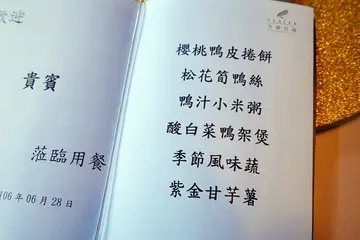 歡迎
貴賓
蒞臨用餐
06年06月28日
櫻桃鴨皮捲餅
松花筍鴨絲
鴨汁小米粥
酸白菜鴨架煲
季節風味蔬
紫金甘芋薯